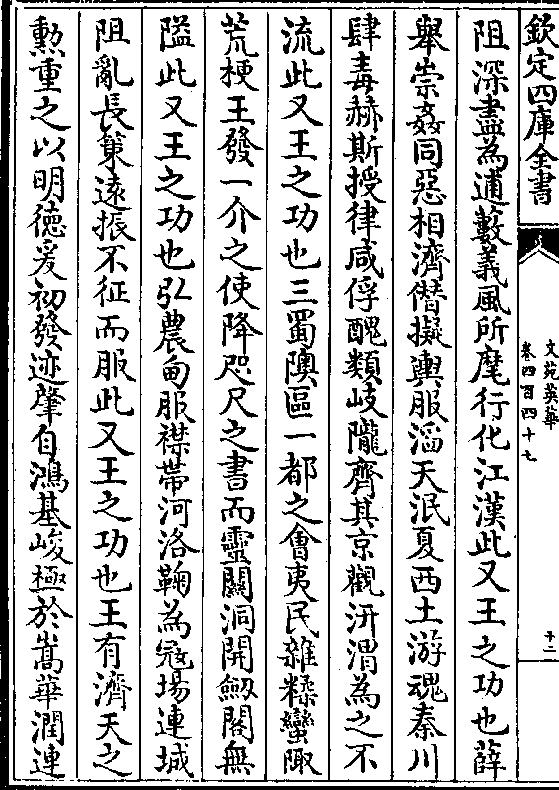 欽定四庫全書
文苑英華
卷四百四十七
十二
阻深盡為逋藪義風所麾行化江漢此又王之功也薛
舉崇姦同惡相濟僭擬輿服滔天泯夏西土游魂秦川
肆毒赫斯授律咸俘醜類岐隴齊其京觀汧渭為之不
流此又王之功也三蜀隩區一都之會夷民雜糅蠻陬
荒梗王發一介之使降咫尺之書而靈關洞開劒閣無
隘此又王之功也弘農甸服襟帶河洛鞠為冦場連城
阻亂長策遠振不征而服此又王之功也王有濟天之
勲重之以明德爰初發迹肇自鴻基峻極於嵩華潤連